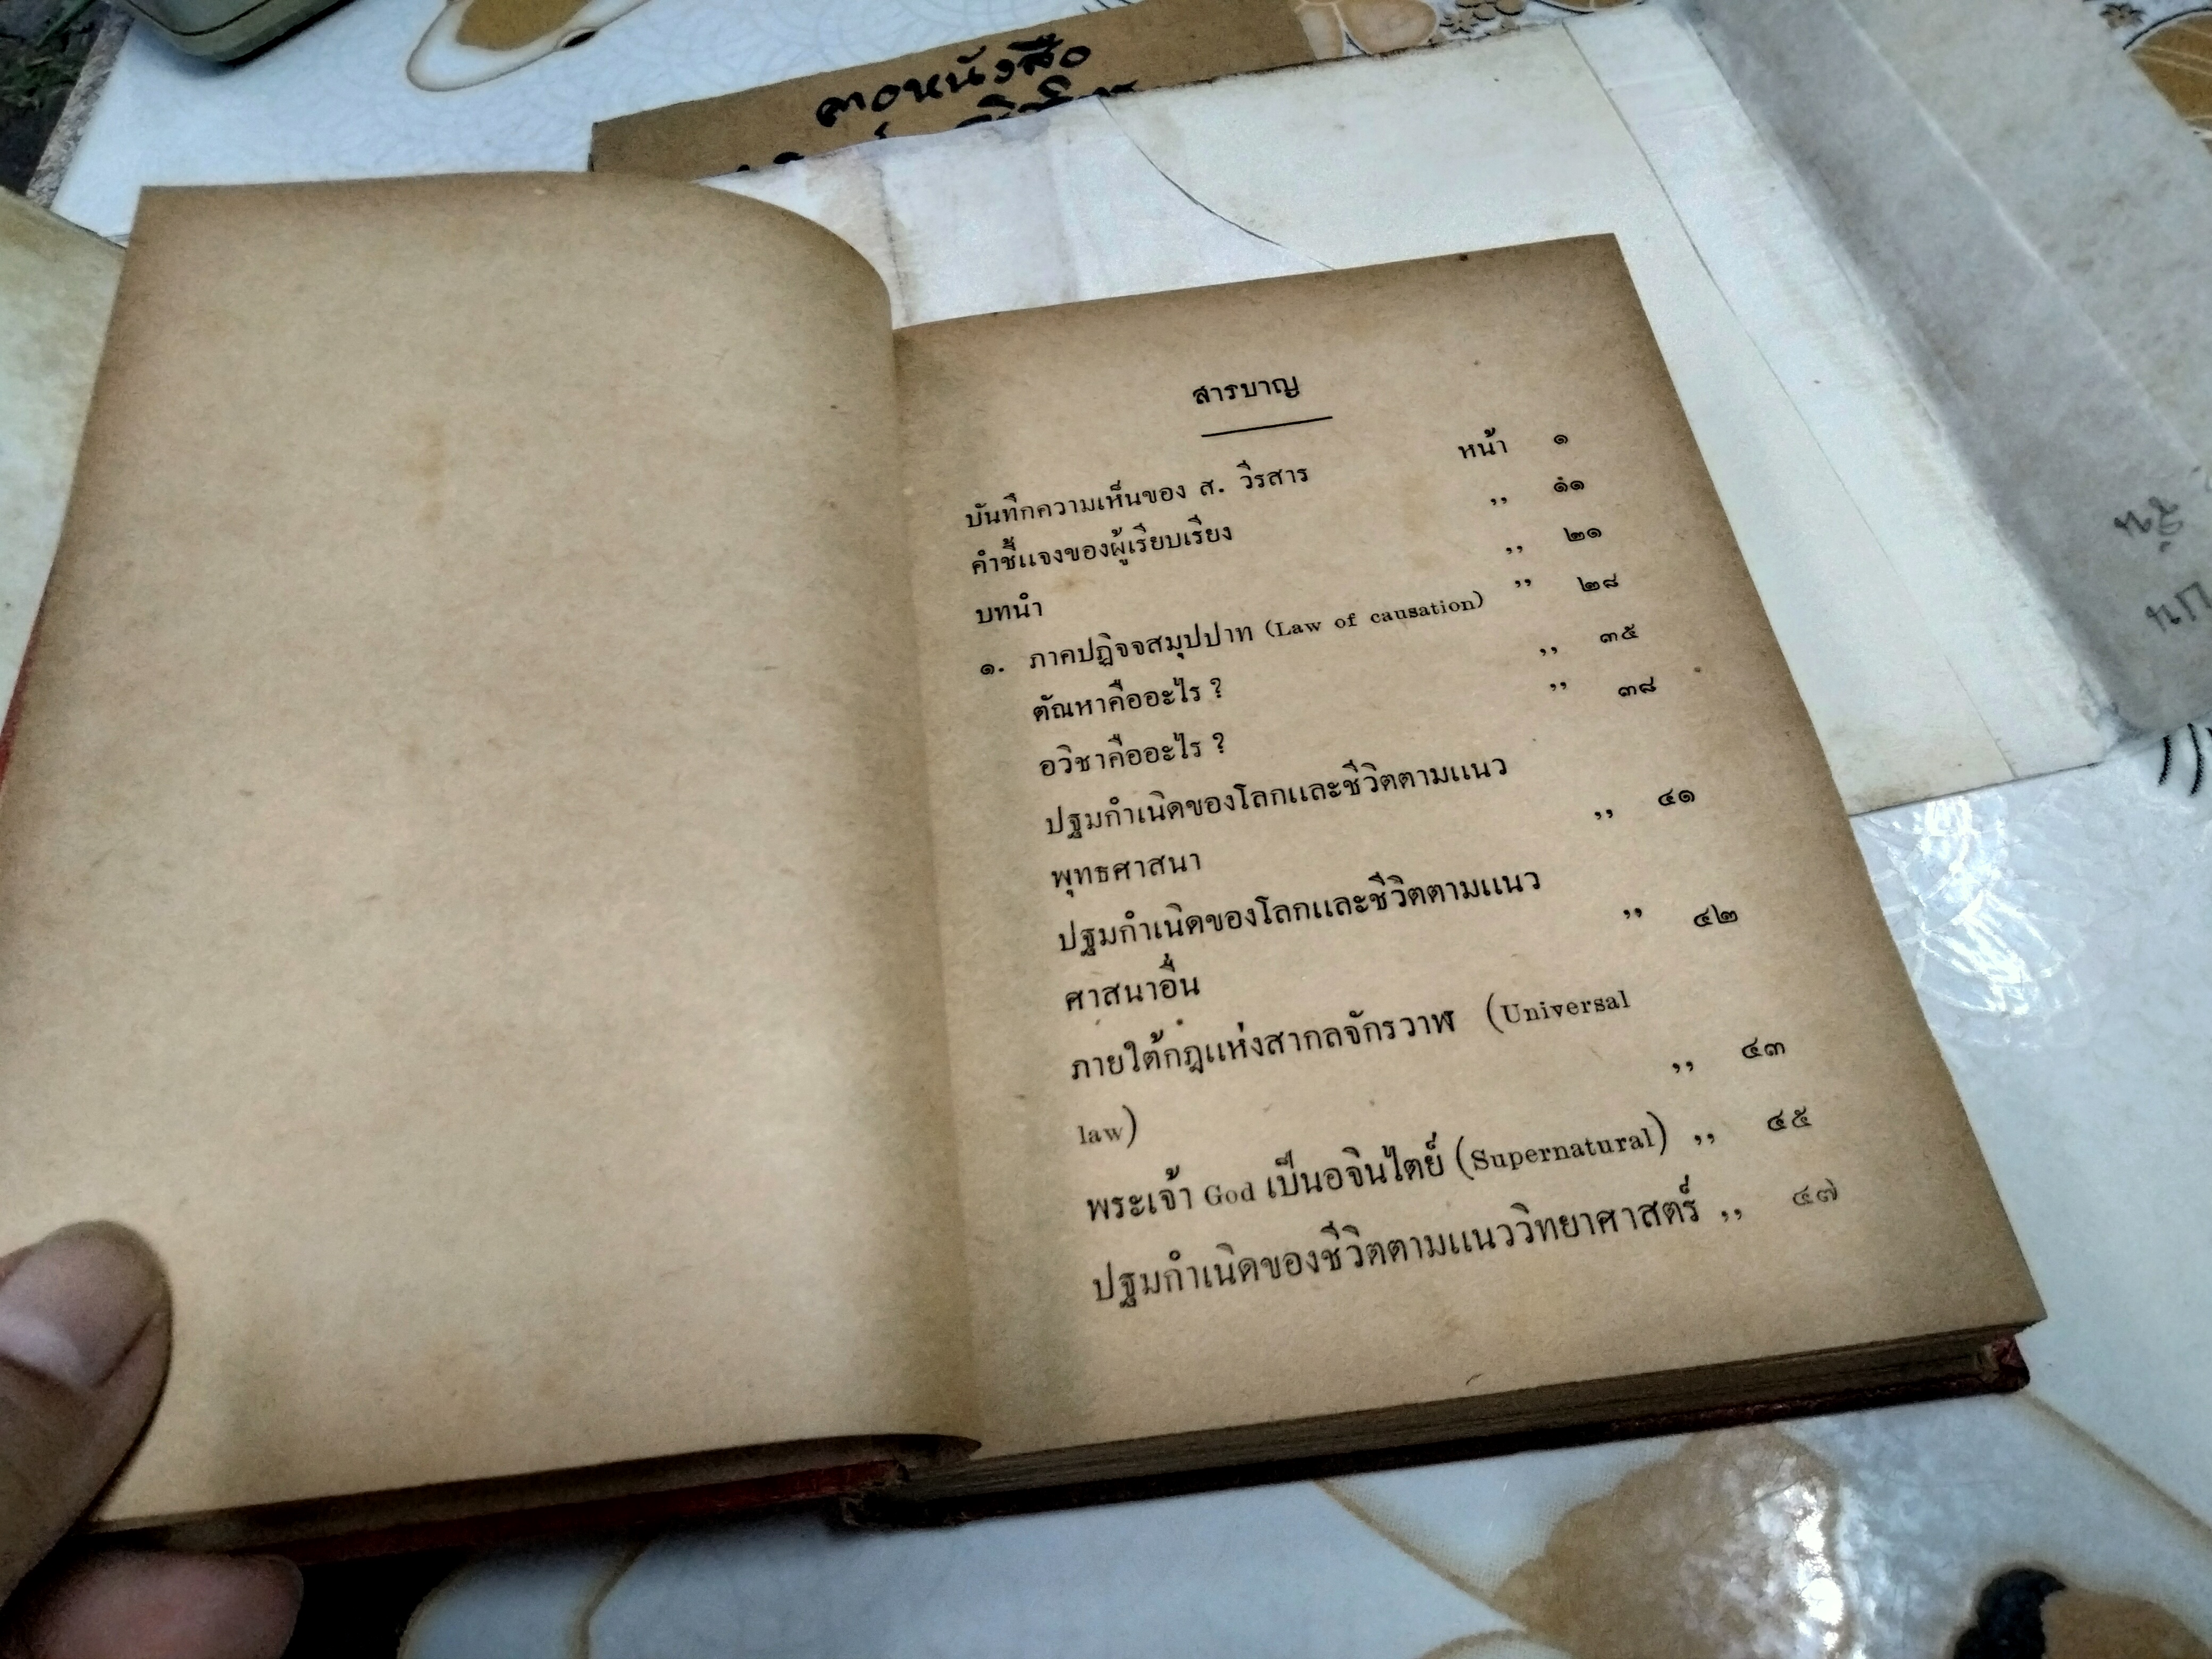 คอหนังสือ
สารบาญ
หน้า ๑
บันทึกความเห็นของ ส. วีรสาร
คำชี้แจงของผู้เรียบเรียง ,, ๑๑
บทนำ ,, ๒๑
๑. ภาคปฏิจจสมุปปาท (Law of causation) ,, ๒๘
ตัณหาคืออะไร ? ,, ๓๕
อวิชาคืออะไร ? ,, ๓๘
ปฐมกำเนิดของโลกและชีวิตตามแนว
พุทธศาสนา ,, ๔๑
ปฐมกำเนิดของโลกและชีวิตตามแนว
ศาสนาอื่น ,, ๔๒
ภายใต้กฎแห่งสากลจักรวาฬ (Universal
law) ,, ๔๓
พระเจ้า God เป็นอจินไตย์ (Supernatural) ,, ๔๕
ปฐมกำเนิดของชีวิตตามแนววิทยาศาสตร์ ,, ๔๗